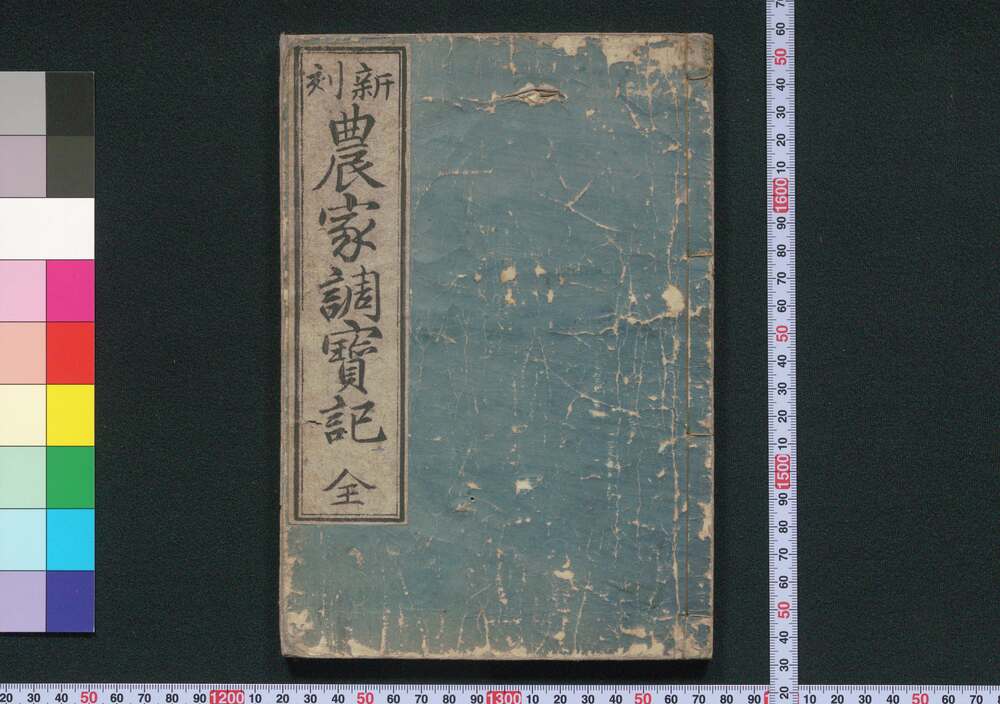 新刻
農家調寶記
全
20 30 40 50 60 70 80 90 1200 10 20 30 40 50 60 70 80 90 1300 10 20 30 40 50 60 70 80 90
10 20 30 40 50 60 70
70 60 50 40 30 20 10 1600 90 80 70 60 50 40 30 20 10 1500 90 80 70 60 50 40 30 20